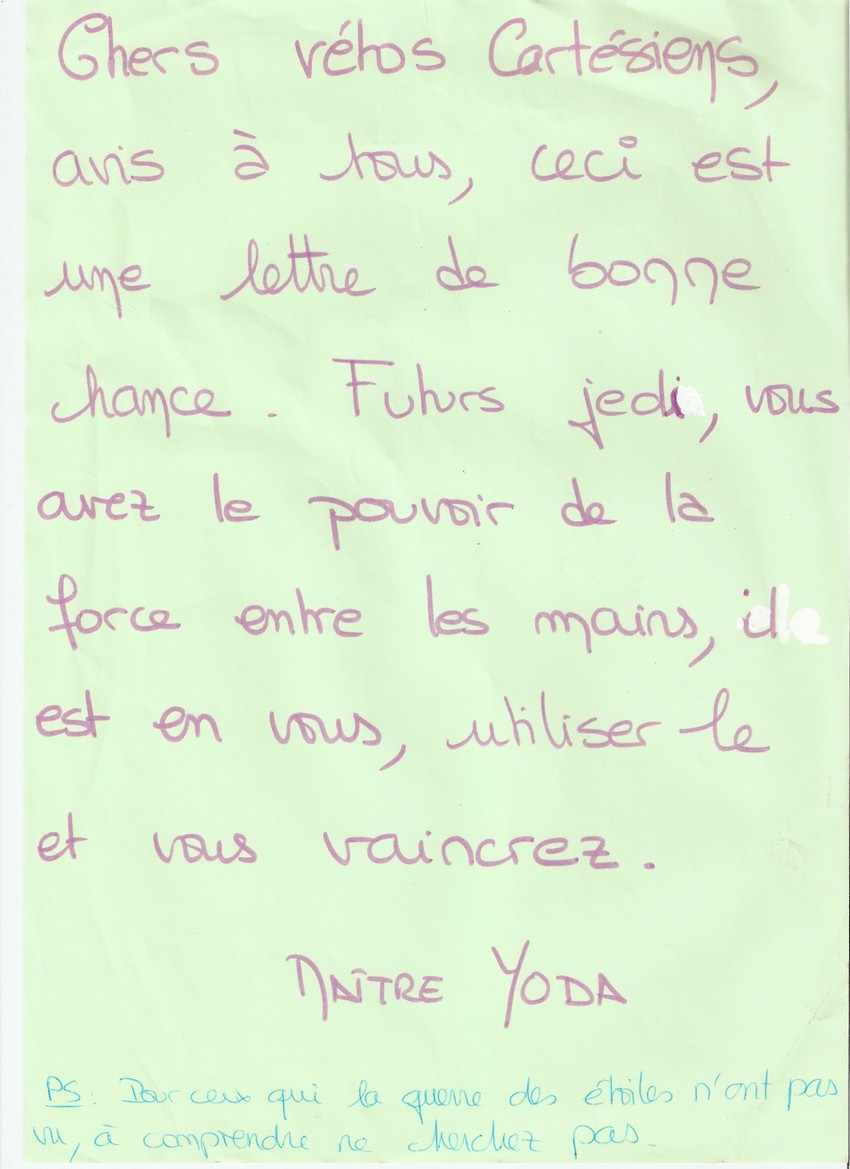 Chers vétos Cartésiens,
avis à tous, ceci est
une lettre de bonne
chance. Futurs jedi, vous
avez le pouvoir de la
force entre les mains, il
est en vous, utiliser-le
et vous vaincrez.
MAÎTRE YODA
PS: Pour ceux qui la guerre des étoiles n'ont pas
vu, à comprendre ne cherchez pas.